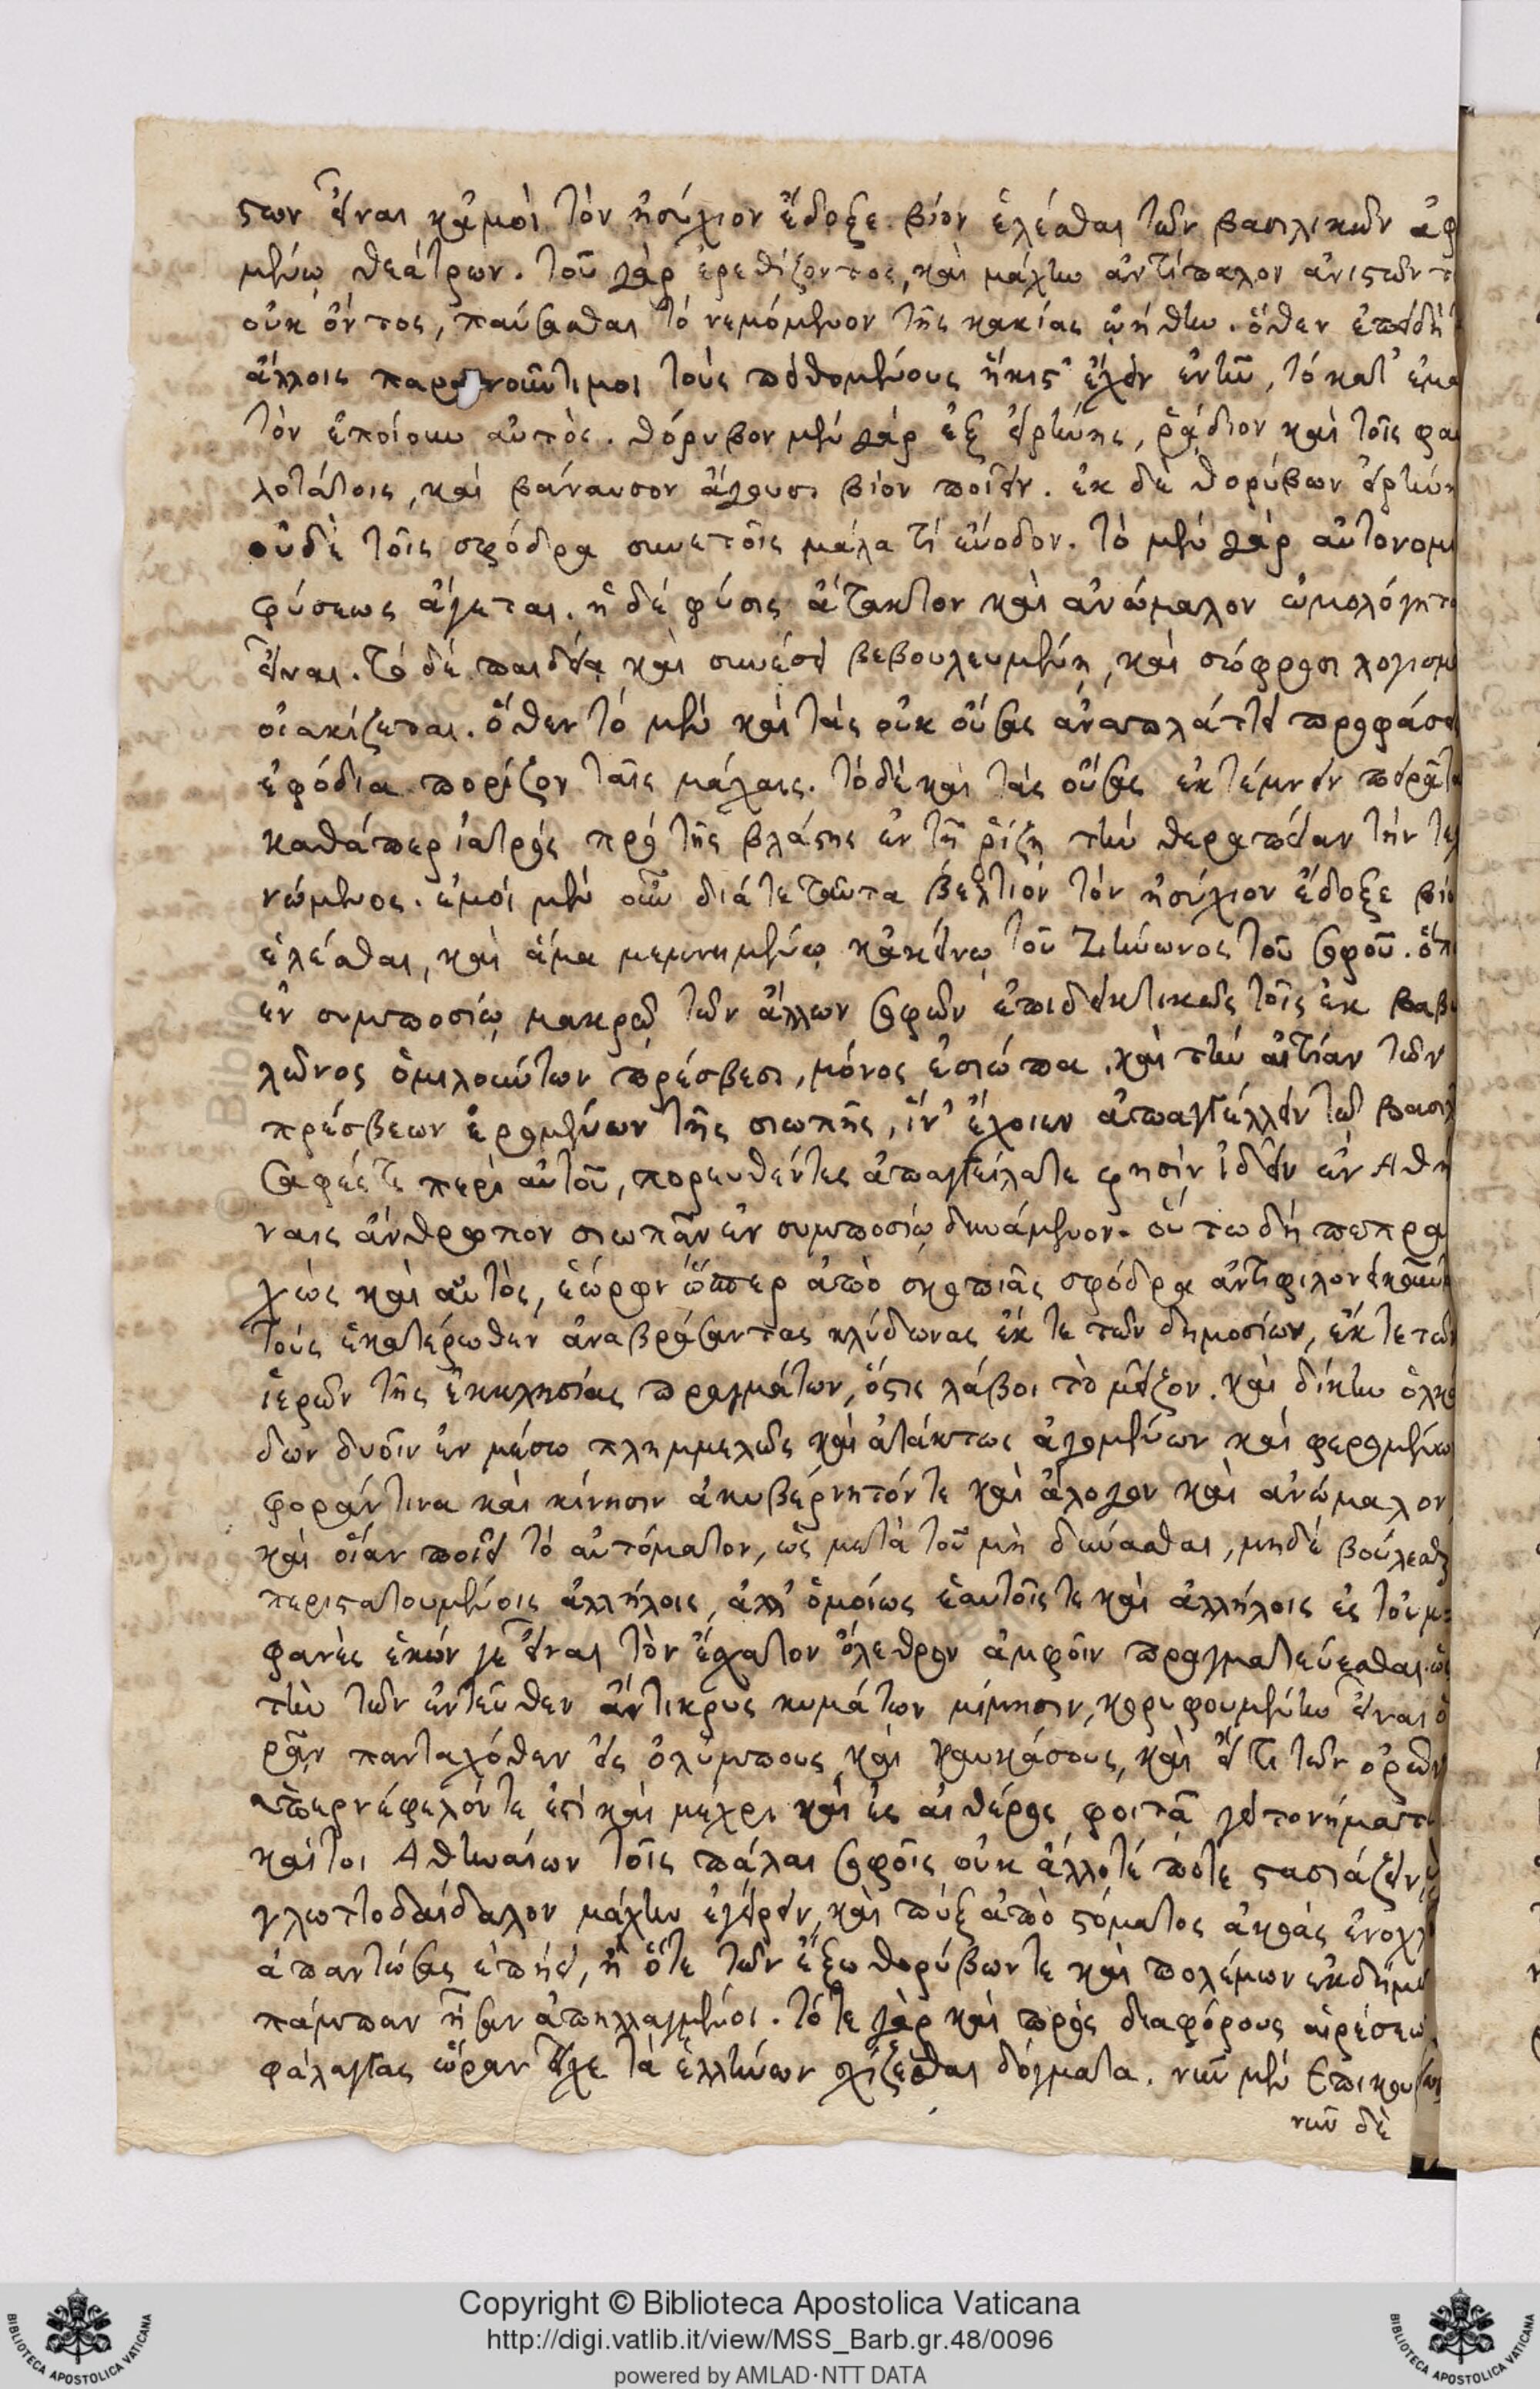 στων εἶναι κἀμοὶ τὸν ἡσύχιον ἔδοξε βίον ἑλέσθαι τῶν βασιλικῶν ἀφ
μένῳ θεάτρων. τοῦ γὰρ ἐρεθίζοντος, καὶ μάχην ἀντίπαλον ἀνιστῶντ
οὐκ ὄντος, παύσασθαι τὸ νεμόμενον τῆς κακίας ᾠήθην. ὅθεν ἐπειδὴ
ἄλλοις παραινοῦντί μοι τοὺς πειθομένους ἥκιστ' ἔχειν ἐνῆν, τὸ κατ' ἐμα
τὸν ἐποίουν αὐτὸς. θόρυβον μὲν γὰρ ἐξ εἰρήνης, ῥάδιον καὶ τοῖς φαυ
λοτάτοις, καὶ βάναυσον ἄγουσι βίον ποιεῖν. ἐκ δὲ θορύβων εἰρήνη
οὐδὲ τοῖς σφόδρα συνετοῖς μάλα τί εὔοδον. τὸ μὲν γὰρ αὐτονομί
φύσεως ἄγεται. ἡ δὲ φύσις ἄτακτον καὶ ἀνώμαλον ὡμολόγητα
εἶναι. τὸ δὲ παιδείᾳ καὶ συνέσει βεβουλευμένῃ, καὶ σώφροσι λογισμο
οἰακίζεται. ὅθεν τὸ μὲν καὶ τὰς οὐκ οὔσας ἀναπλάττει προφάσει
ἐφόδια πορίζον ταῖς μάχαις. τὸ δὲ καὶ τὰς οὔσας ἐκτέμνειν πειρᾶτα
καθάπερ ἰατρὸς πρὸ τῆς βλάστης ἐν τῇ ῥίζῃ τὴν θεραπείαν τὴν τεχ
νώμενος. ἐμοὶ μὲν οὖν διά τε ταῦτα βέλτιον τὸν ἡσύχιον ἔδοξε βίο
ἑλέσθαι, καὶ ἅμα μεμνημένῳ κἀκείνῳ τοῦ Ζήνωνος τοῦ σοφοῦ. ὅπ
ἐν συμποσίῳ μακρῷ τῶν ἄλλων σοφῶν ἐπιδεικτικῶς τοῖς ἐκ βαβυ
λῶνος ὁμιλούντων πρέσβεσι, μόνος ἐσιώπα. καὶ τὴν αἰτίαν τῶν
πρέσβεων ἐρομένων τῆς σιωπῆς, ἵν' ἔχοιεν ἀπαγγέλλειν τῷ βασιλ
σαφές τι περὶ αὐτοῦ, πορευθέντες ἀπαγγείλατε φησὶν ἰδεῖν ἐν Ἀθή
ναις ἄνθρωπον σιωπᾶν ἐν συμποσίῳ δυνάμενον. οὕτω δὴ πεπρα
χὼς καὶ αὐτὸς, ἑώρων ὥσπερ ἀπὸ σκοπιᾶς σφόδρα ἀντιφιλονεικοῦντ
τοὺς ἑκατέρωθεν ἀναβράσαντας κλύδωνας ἔκ τε τῶν δημοσίων, ἔκ τε τῶν
ἱερῶν τῆς ἐκκλησίας πραγμάτων, ὅστις λάβοι τὸ μεῖζον. καὶ δίκην ὁλκά
δων δυοῖν ἐν μέσῳ πλημμελῶς καὶ ἀτάκτως ἀγομένων καὶ φερομένων
φοράν τινα καὶ κίνησιν ἀκυβέρνητόν τε καὶ ἄλογον καὶ ἀνώμαλον,
καὶ οἵαν ποιεῖ τὸ αὐτόματον, ὡς μετὰ τοῦ μὴ δύνασθαι, μηδὲ βούλεσθαι
περιστατουμένοις ἀλλήλοις, ἀλλ' ὁμοίως ἑαυτοῖς τε καὶ ἀλλήλοις ἐς τοὐμ
φανὲς ἑκών γε εἶναι τὸν ἔσχατον ὄλεθρον ἀμφοῖν πραγματεύεσθαι. ὡς
τὴν τῶν ἐντεῦθεν ἄντικρυς κυμάτων μίμησιν, κορυφουμένην εἶναι ὁ
ρᾷν πανταχόθεν εἰς ὀλύμπους καὶ καυκάσους, καὶ εἴ τι τῶν ὀρῶν
ὑπερνέφελόν τε ἐστὶ καὶ μέχρι καὶ ἐς αἰθέρος φοιτᾷ γειτονήματα
καίτοι Ἀθηναίων τοῖς πάλαι σοφοῖς οὐκ ἄλλοτέ ποτε στασιάζειν,
γλωττοδαίδαλον μάχην ἐγείρειν, καὶ πὺξ ἀπὸ στόματος ἀκοὰς ἐνοχλ
ἀπαντώσας ἐπῄει, ἢ ὅτε τῶν ἔξω θορύβων τε καὶ πολέμων ἐκδήμω
πάμπαν ἦσαν ἀπηλλαγμένοι. τότε γὰρ καὶ πρὸς διαφόρους αἱρέσεων
φάλαγγας ὥραν εἶχε τὰ ἑλλήνων σχίζεσθαι δόγματα. νῦν μὲν Ἐπικου
νῦν δὲ
Copyright © Biblioteca Apostolica Vaticana
http://digi.vatlib.it/view/MSS_Barb.gr.48/0096
powered by AMLAD·NTT DATA
BIBLIOTECA APOSTOLICA VATICANA
BIBLIOTECA APOSTOLICA VATICANA